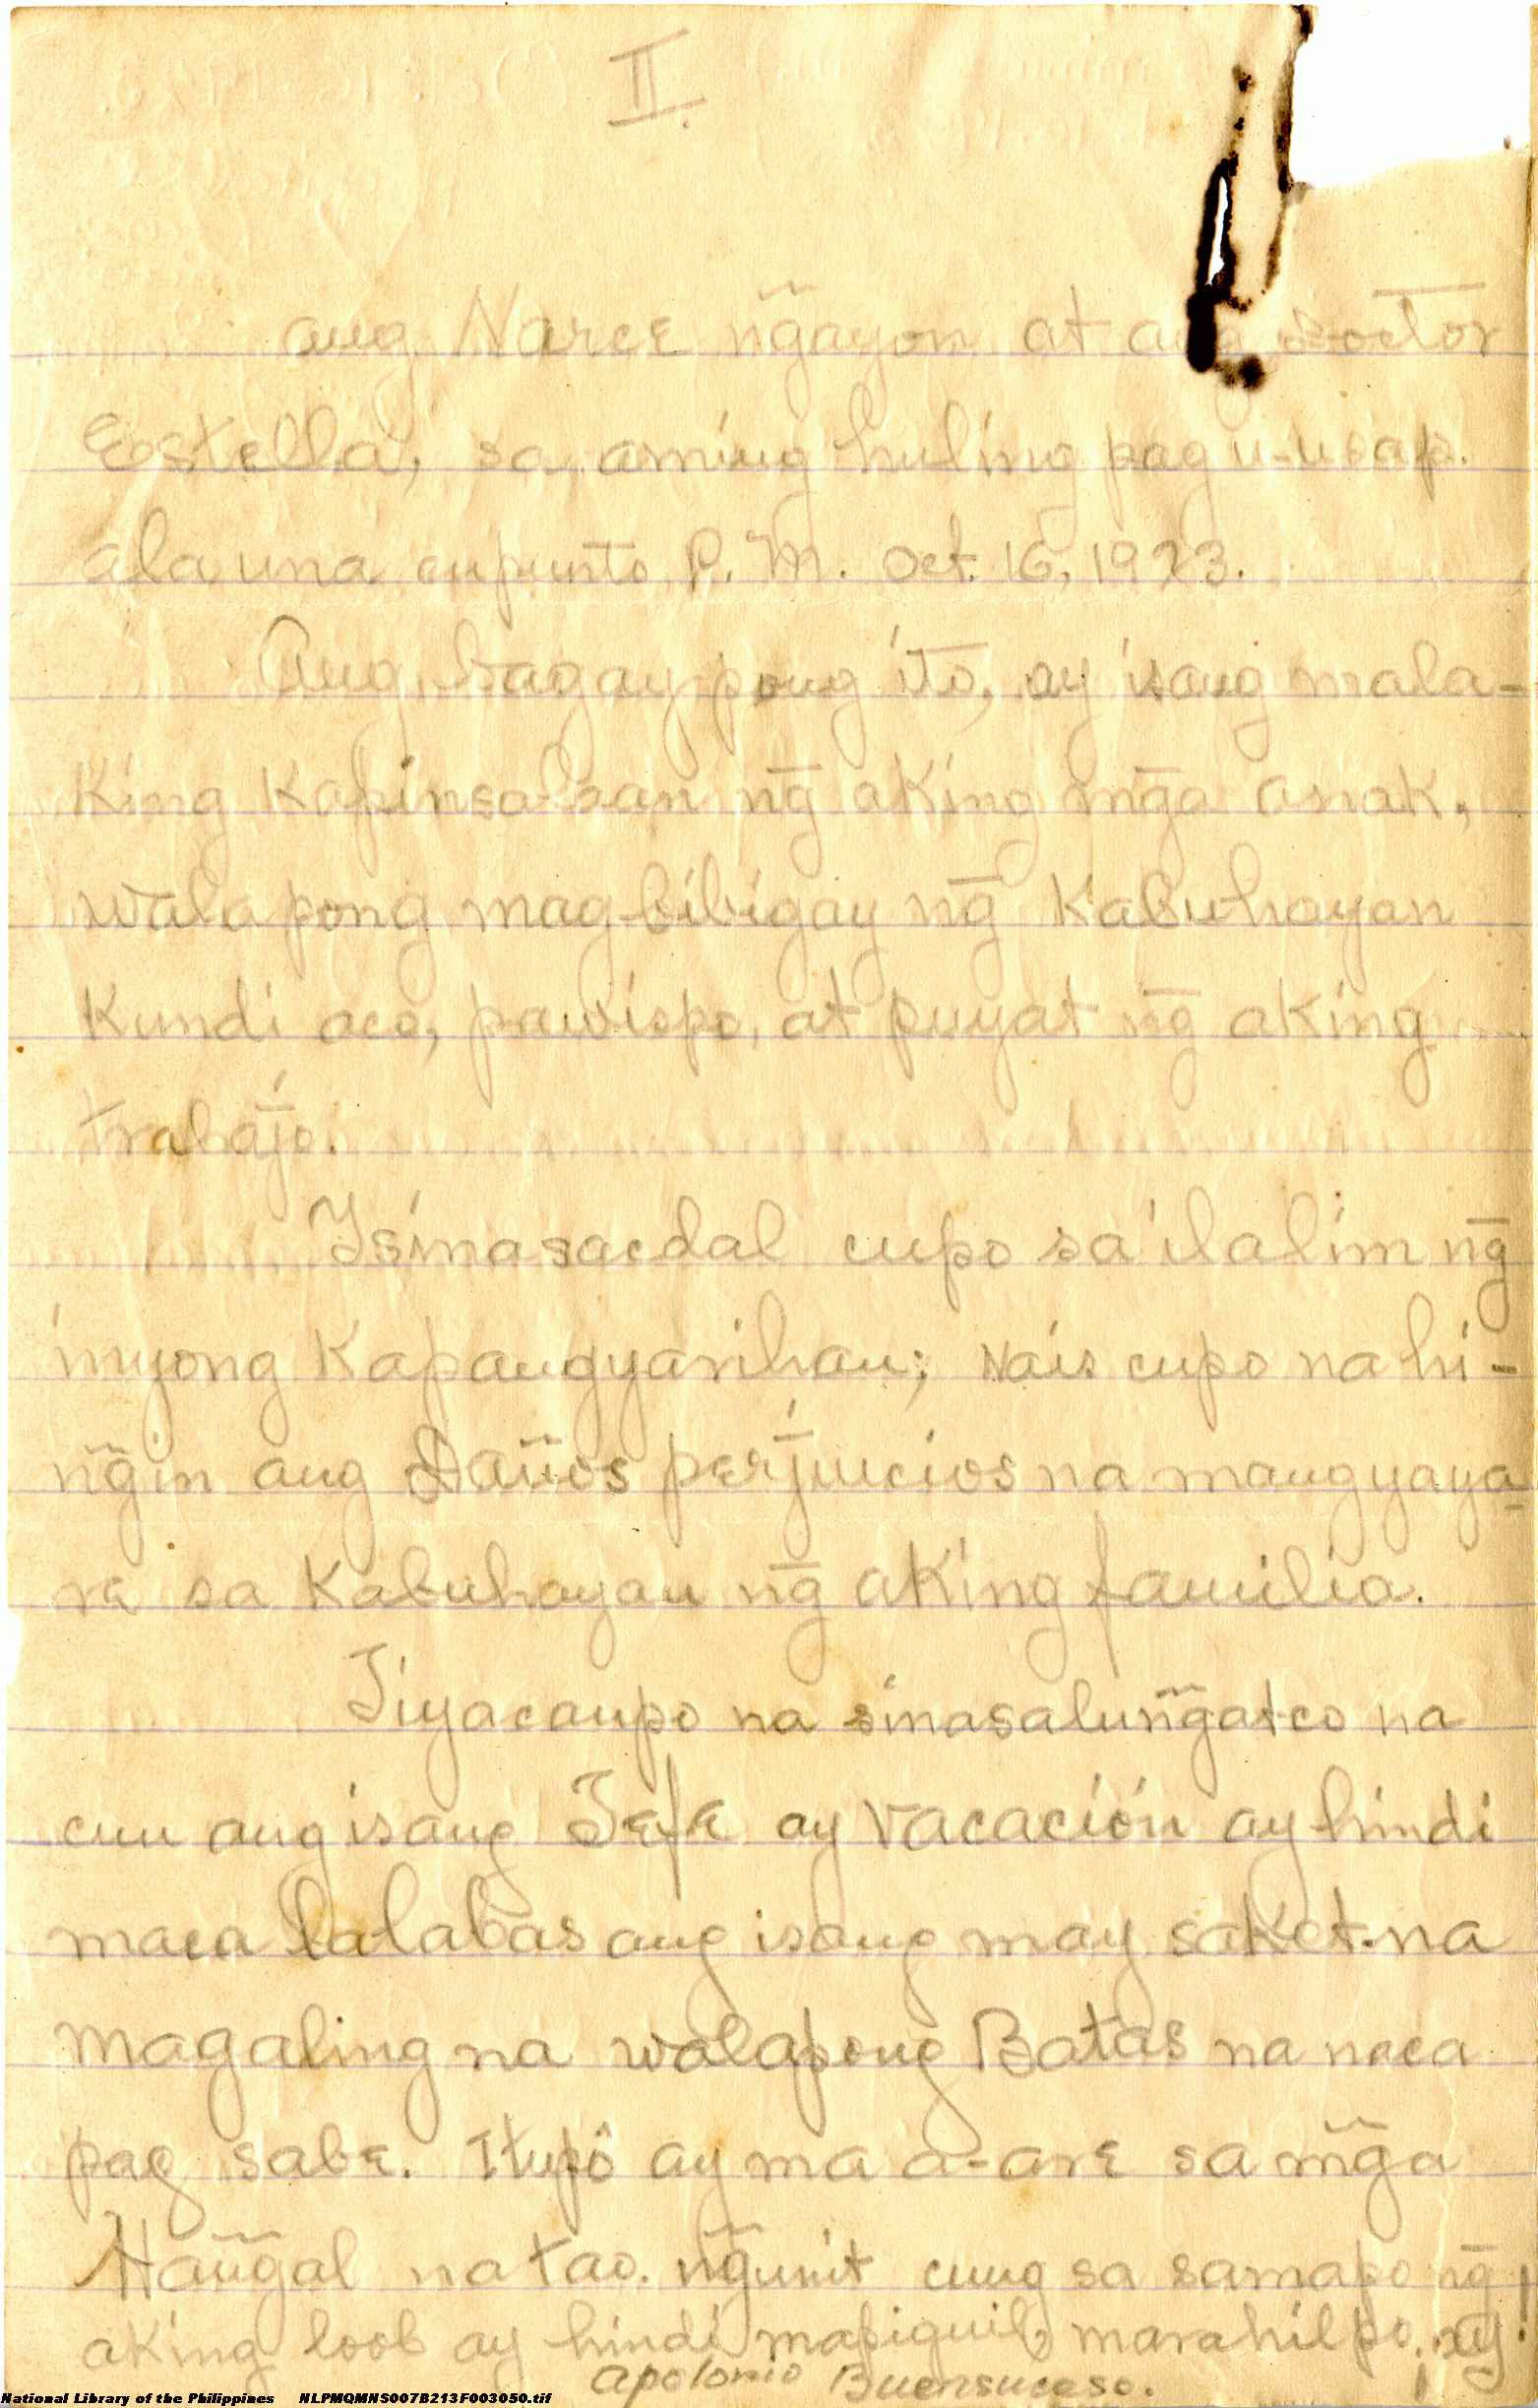 II.
ang Narce n̄gayon at ang Doctor
Estella, sa aming huling pag u-usap.
ala una enpunto P. M. Oct. 16, 1923.
Ang bagay pong ito, ay isang mala-
king kapinsalaan n̄g aking m̄ga anak,
wala pong mag-bibigay n̄g Kabuhayan
Kundi aco, pawispo, at puyat n̄g aking
trabajo.
Isinasacdal cupo sa ilalim n̄g
inyong Kapangyarihan; Nais cupo na hi-
n̄gin ang Daños perjuicios na mangyaya-
re sa Kabuhayan n̄g aking familia.
Tiyacanpo na sinasalun̄gatco na
cun ang isang Jefe ay vacación ay hindi
maca lalabas ang isang may saket na
magaling na walapong Batas na naca
pag sabe. Itupô ay ma a-are sa m̄ga
Han̄gal na tao. n̄gunit cung sa samapo n̄g
aking loob ay hindi mapiguil marahilpo. ay!
Apolonio Buensuceso.
National Library of the Philippines NLPMQMNS007B213F003050.tif